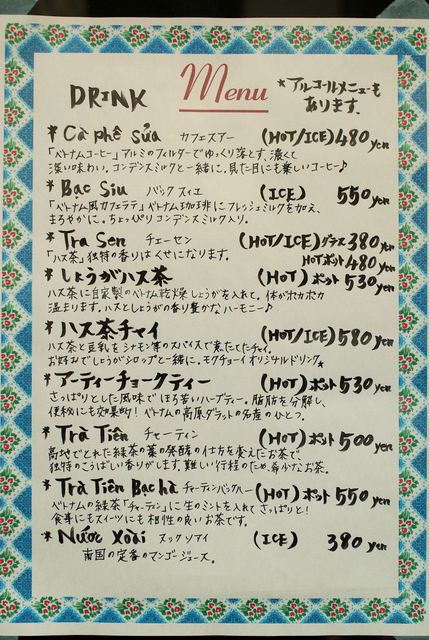 DRINK Menu *アルコールメニューも
あります.
* Cà phê sửa カフェスアー (HOT/ICE) 480yen
「ベトナムコーヒー」アルミのフィルターでゆっくり落とす、濃くて
深い味わい。コンデンスミルクと一緒に。見た目にも楽しいコーヒー♪
* Bạc Sỉu バック スィエ (ICE) 550yen
「ベトナム風カフェラテ」ベトナム珈琲にフレッシュミルクを加え、
まろやかに。ちょっぴりコンデンスミルク入り。
* Tra Sen チェーセン (HOT/ICE)グラス 380yen
「ハス茶」独特の香りはくせになります。 HOTポット 480yen
* しょうがハス茶 (HOT) ポット 530yen
ハス茶に自家製のベトナム乾燥しょうがを入れて。体がポカポカ
温まります。ハスとしょうがの香り豊かなハーモニー♪
* ハス茶チャイ (HOT/ICE) 580yen
ハス茶と豆乳をシナモン等のスパイスで煮たてたチャイ。
お好みでしょうがシロップと一緒に。モクチョーイオリジナルドリンク★
* アーティーチョークティー (HOT) ポット 530yen
さっぱりとした風味でほろ苦いハーブティー。脂肪を分解し、
便秘にも効果的! ベトナムの高原ダラットの名産のひとつ。
* Trà Tiên チャーティン (HOT) ポット 500yen
高地でとれた緑茶の葉の発酵の仕方を変えたお茶で、
独特のこうばしい香りがします。難しい行程のため、希少なお茶。
* Trà Tiên Bạc hà チャーティンバックハー (HOT) ポット 550yen
ベトナムの緑茶「チャーティン」に生のミントを入れてさっぱりと!
食事にもスイーツにも相性の良いお茶です。
* Nước Xoài ヌック ソアイ (ICE) 380yen
南国の定番のマンゴージュース。